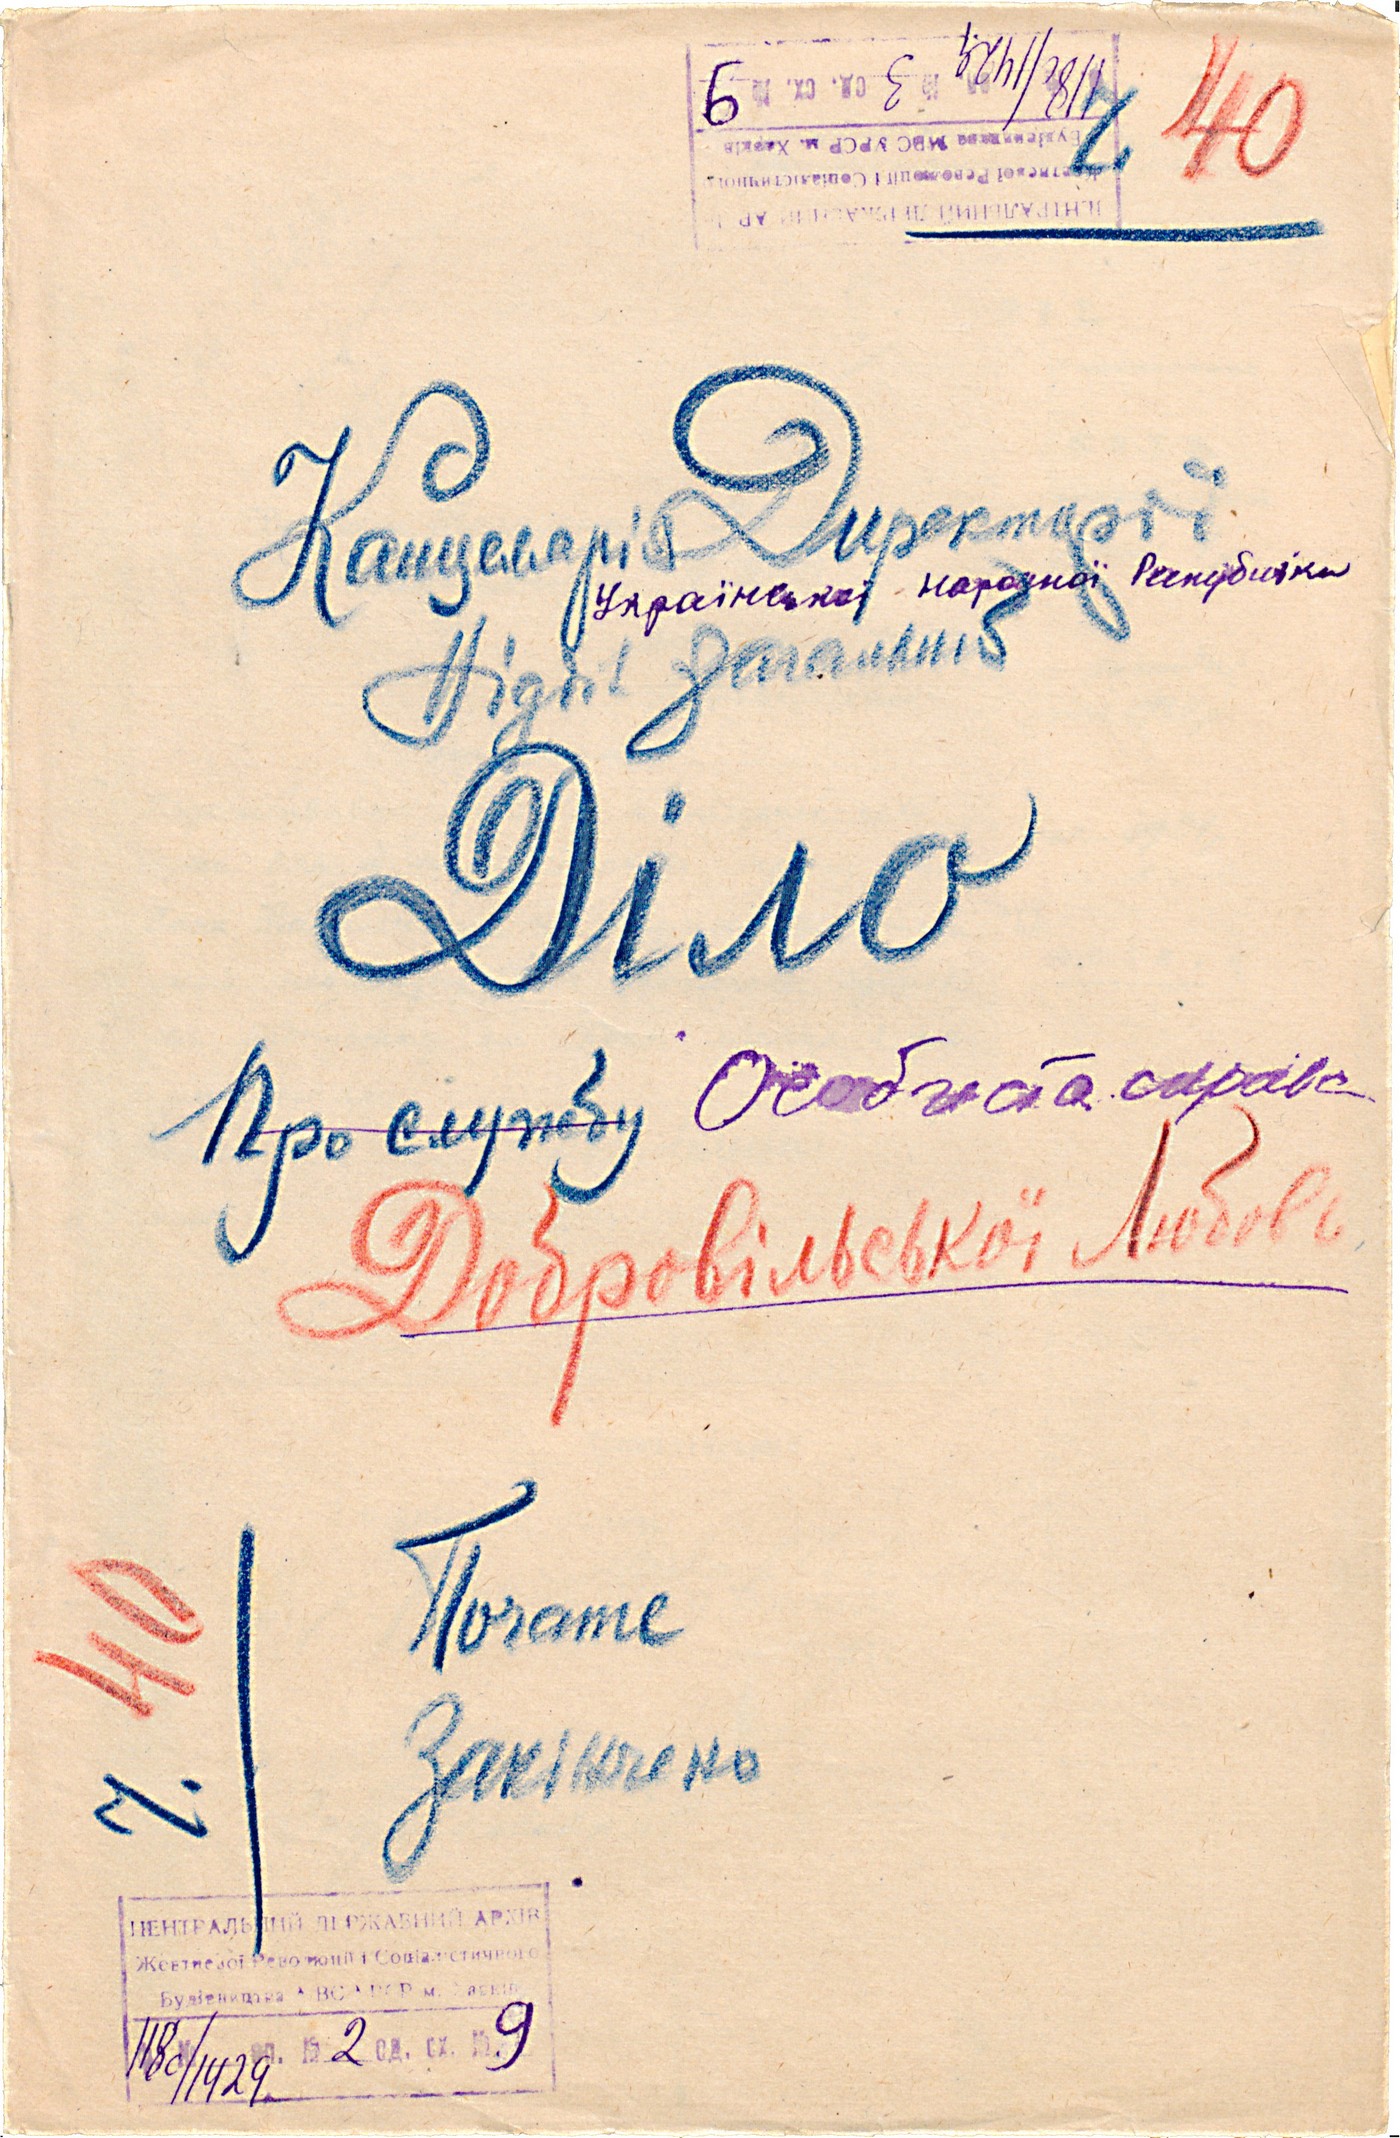 ЦЕНТРАЛЬНИЙ ДЕРЖАВНИЙ АР
Жовтневої Революції і Соціалістичного
Будівництва МВС УРСР м. Харків
118с/1429 оп. № 3 од. сх. № 9
ч. 40
Канцелярія Директорії
Української Народної Республіки
Відділ Загальний
Діло
Про службу Особиста справа
Добровільської Любов
ч. 40
Почате
Закінчено
ЦЕНТРАЛЬНИЙ ДЕРЖАВНИЙ АРХІВ
Жовтневої Революції і Соціалістичного
Будівництва МВС УРСР м. Харків
118с/1429 оп. № 2 од. сх. № 9